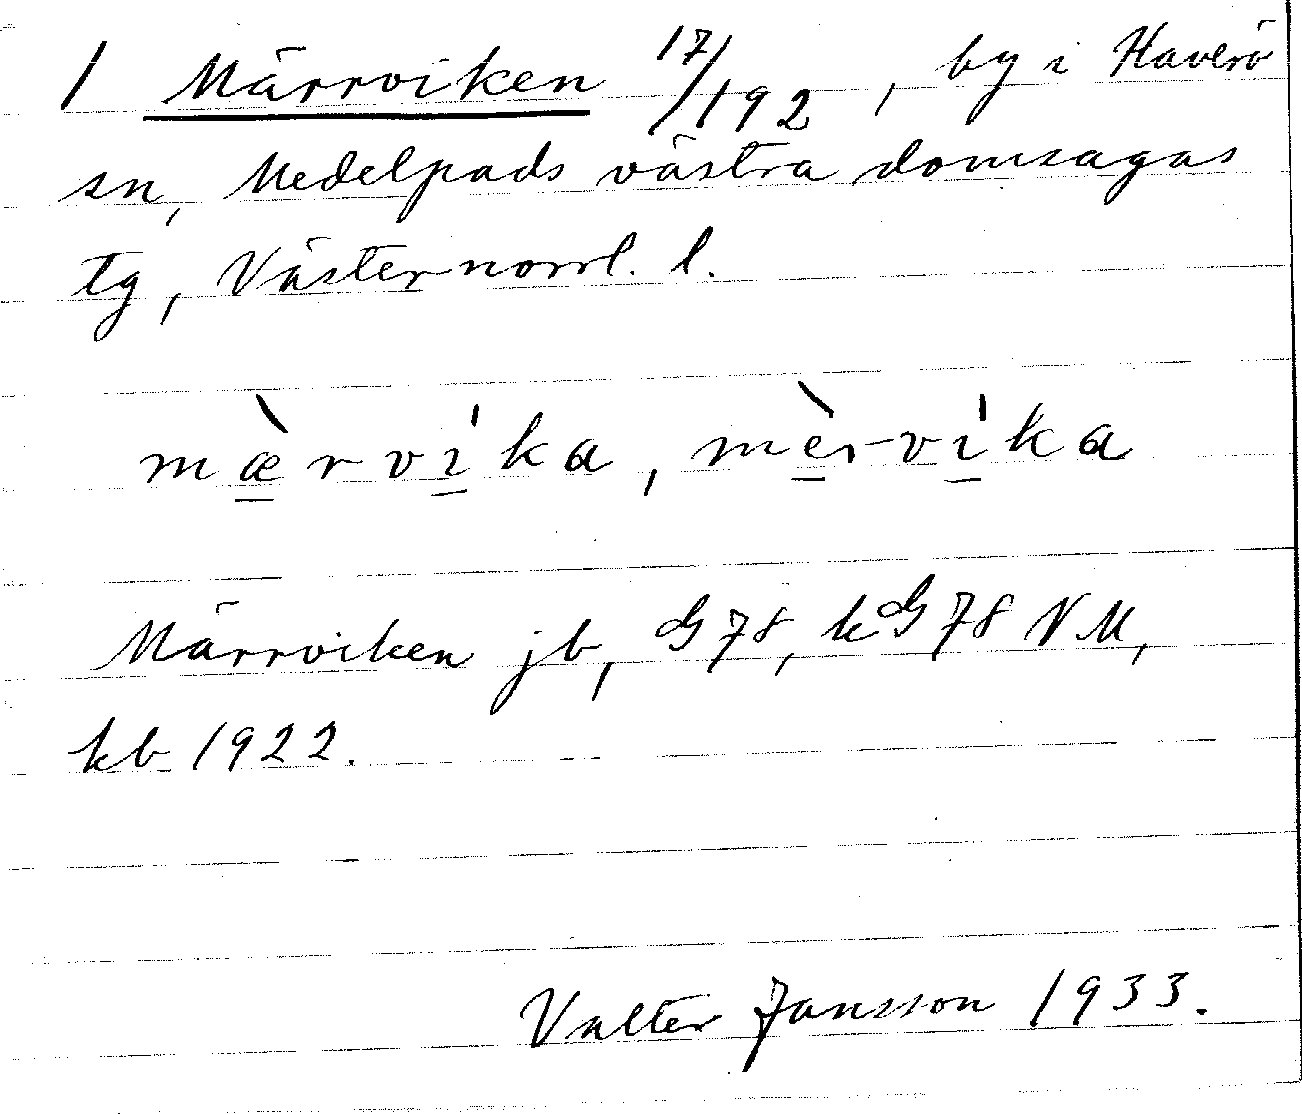 1 Märrviken 17/192, by i Haverö
sn, Medelpads västra domsagas
tg, Västernorrl. l.
mæ̀rvı̍ka, mèr-vı̍ka
Märrviken jb, G 78, kG 78 NM,
kb 1922.
Valter Jansson 1933.